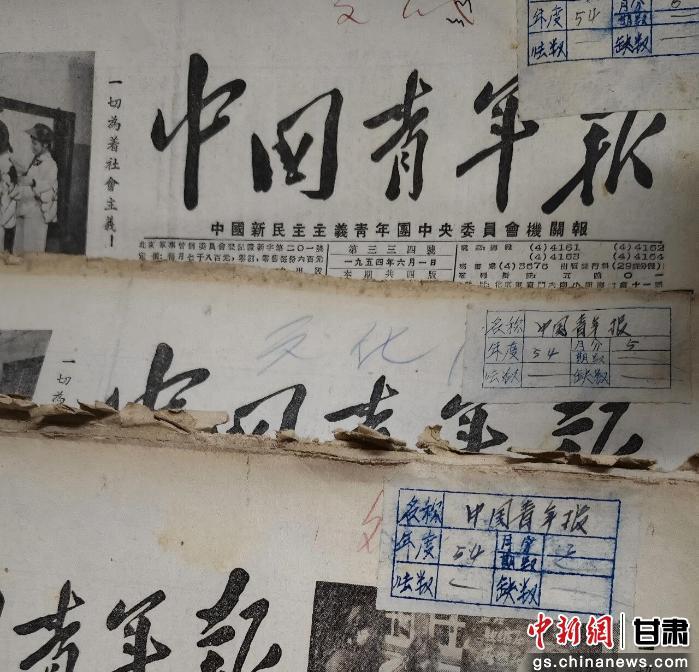 年度 54 月分期数
法数 — 缺数 —
一切為着社會主義！
中国青年报
中國新民主主義青年團中央委員會機關報
第三三四號
一九五四年六月一日
本期共四版
(4)4161 (4)4162
(4)4163 (4)4164
(4)3676
文化
名称 中国青年报
年度 54 月分期数 5
法数 — 缺数 —
一切為
中国青年报
名称 中国青年报
年度 54 月分期数 2
法数 — 缺数 —
国青年报
中新網 甘肃
gs.chinanews.com